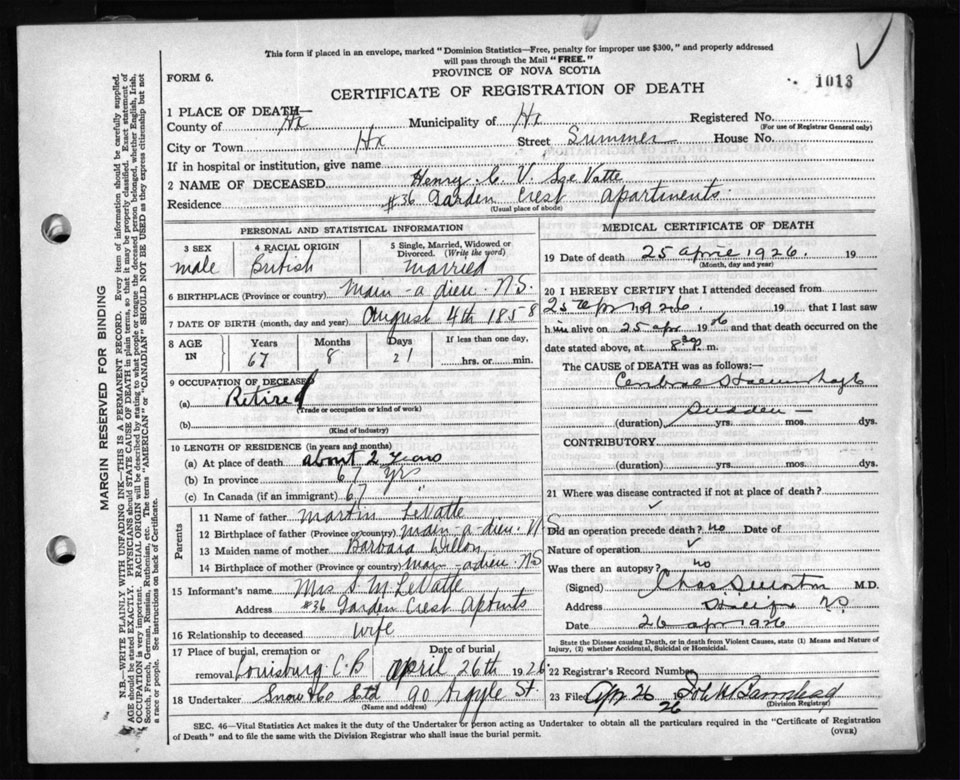 This form if placed in an envelope, marked "Dominion Statistics—Free, penalty for improper use $300," and properly addressed
will pass through the Mail "FREE."
PROVINCE OF NOVA SCOTIA
FORM 6.
1013
CERTIFICATE OF REGISTRATION OF DEATH
MARGIN RESERVED FOR BINDING
N.B.—WRITE PLAINLY WITH UNFADING INK—THIS IS A PERMANENT RECORD. Every item of information should be carefully supplied.
AGE should be stated EXACTLY. PHYSICIANS should STATE CAUSE OF DEATH in plain terms, so that it may be properly classified. Exact statement of
OCCUPATION is very important. RACIAL ORIGIN will be described by stating to what people or tongue the deceased person belonged, whether English, Irish,
Scotch, French, German, Russian, Ruthenian, etc. The terms "AMERICAN" or "CANADIAN" SHOULD NOT BE USED as they express citizenship but not
a race or people. See instructions on back of Certificate.
1 PLACE OF DEATH—
County of Hx Municipality of Hx Registered No.
(For use of Registrar General only)
City or Town Hx Street Summer House No.
If in hospital or institution, give name
2 NAME OF DECEASED Henry C V Vatte
Residence #36 Garden Crest Apartments
(Usual place of abode)
PERSONAL AND STATISTICAL INFORMATION
3 SEX 4 RACIAL ORIGIN 5 Single, Married, Widowed or Divorced. (Write the word)
male British married
6 BIRTHPLACE (Province or country) Main-a dieu. N.S.
7 DATE OF BIRTH (month, day and year) August 4th 1858
8 AGE IN Years Months Days If less than one day,
67 8 21 hrs. or min.
9 OCCUPATION OF DECEASED
(a) Retired
(Trade or occupation or kind of work)
(b)
(Kind of industry)
10 LENGTH OF RESIDENCE (in years and months)
(a) At place of death about 2 years
(b) In province 67 yrs
(c) In Canada (if an immigrant) 67 "
Parents
11 Name of father Martin LeVatte
12 Birthplace of father (Province or country) Main-a-dieu. N S
13 Maiden name of mother Barbara Dillon
14 Birthplace of mother (Province or country) Main-adieu. NS
15 Informant's name Mrs S. M LeVatte
Address #36 Garden Crest Aptmts
16 Relationship to deceased wife
17 Place of burial, cremation or removal Louisburg C.B Date of burial April 26th 1926.
18 Undertaker Snow & Co Ltd 90 Argyle St.
(Name and address)
MEDICAL CERTIFICATE OF DEATH
19 Date of death 25 April 1926. 19
(Month, day and year)
20 I HEREBY CERTIFY that I attended deceased from
25 Apr 1926. 19 that I last saw
him alive on 25 apr 1926 and that death occurred on
date stated above, at m.
The CAUSE OF DEATH was as follows:—
Cerebral Haemorrhage
sudden —
(duration) yrs. mos. dys.
CONTRIBUTORY
(duration) yrs. mos. dys.
21 Where was disease contracted if not at place of death?
Did an operation precede death? no Date of
Nature of operation
Was there an autopsy? no
(Signed) Chas. M.D.
Address Halifax N.S.
Date 26 apr 1926
State the Disease causing Death, or in death from Violent Causes, state (1) Means and Nature of
Injury, (2) whether Accidental, Suicidal or Homicidal.
22 Registrar's Record Number
23 Filed Apr 26 26 John H Barnstead
(Division Registrar)
SEC. 46—Vital Statistics Act makes it the duty of the Undertaker or person acting as Undertaker to obtain all the particulars required in the "Certificate of Registration
of Death" and to file the same with the Division Registrar who shall issue the burial permit.
(OVER)